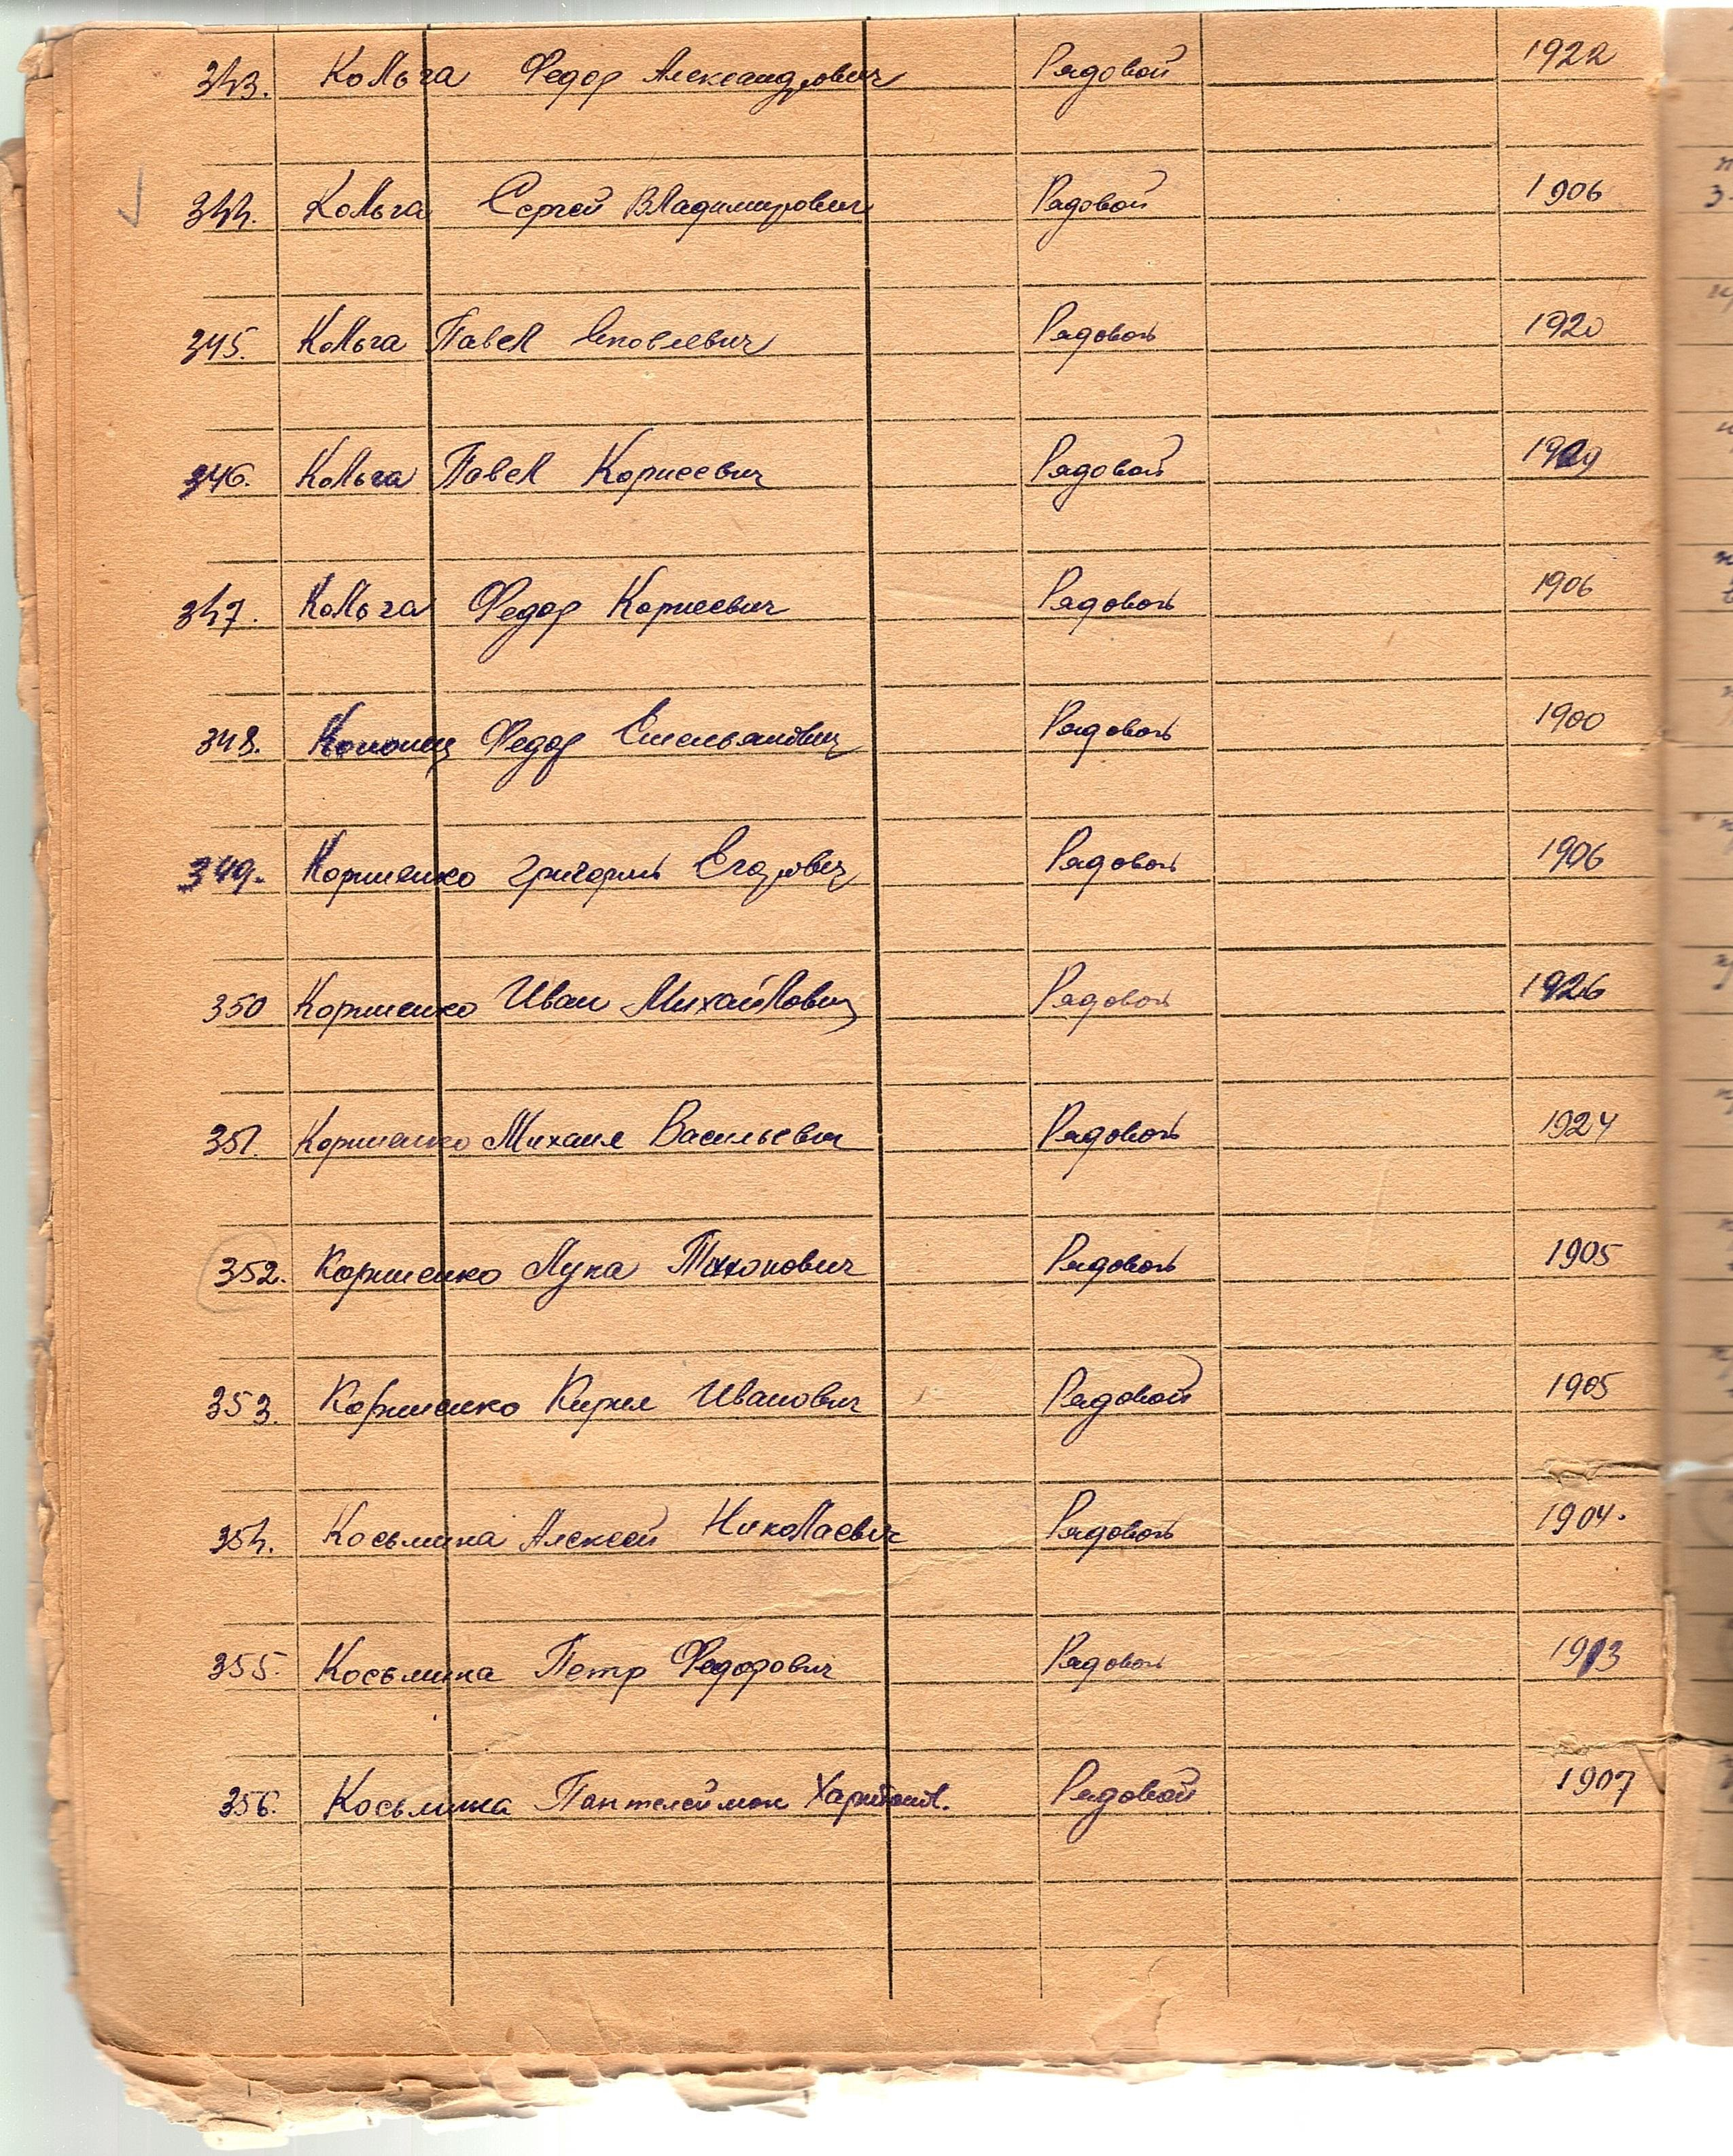 343. Кольга Федор Александрович Рядовой 1922
344. Кольга Сергей Владимирович Рядовой 1906
345. Кольга Павел Яковлевич Рядовой 1920
346. Кольга Павел Корнеевич Рядовой
347. Кольга Федор Корнеевич Рядовой 1906
348. Кононец Федор Емельянович Рядовой 1900
349. Корниенко Григорий Егорович Рядовой 1906
350 Корниенко Иван Михайлович Рядовой 1926
351. Корниенко Михаил Васильевич Рядовой 1924
352. Корниенко Лука Тихонович Рядовой 1905
353. Корниенко Кирил Иванович Рядовой 1905
354. Косьмина Алексей Николаевич Рядовой 1904.
355. Косьмина Петр Федорович Рядовой 1913
356. Косьмина Пантелеймон Харитонов. Рядовой 1907